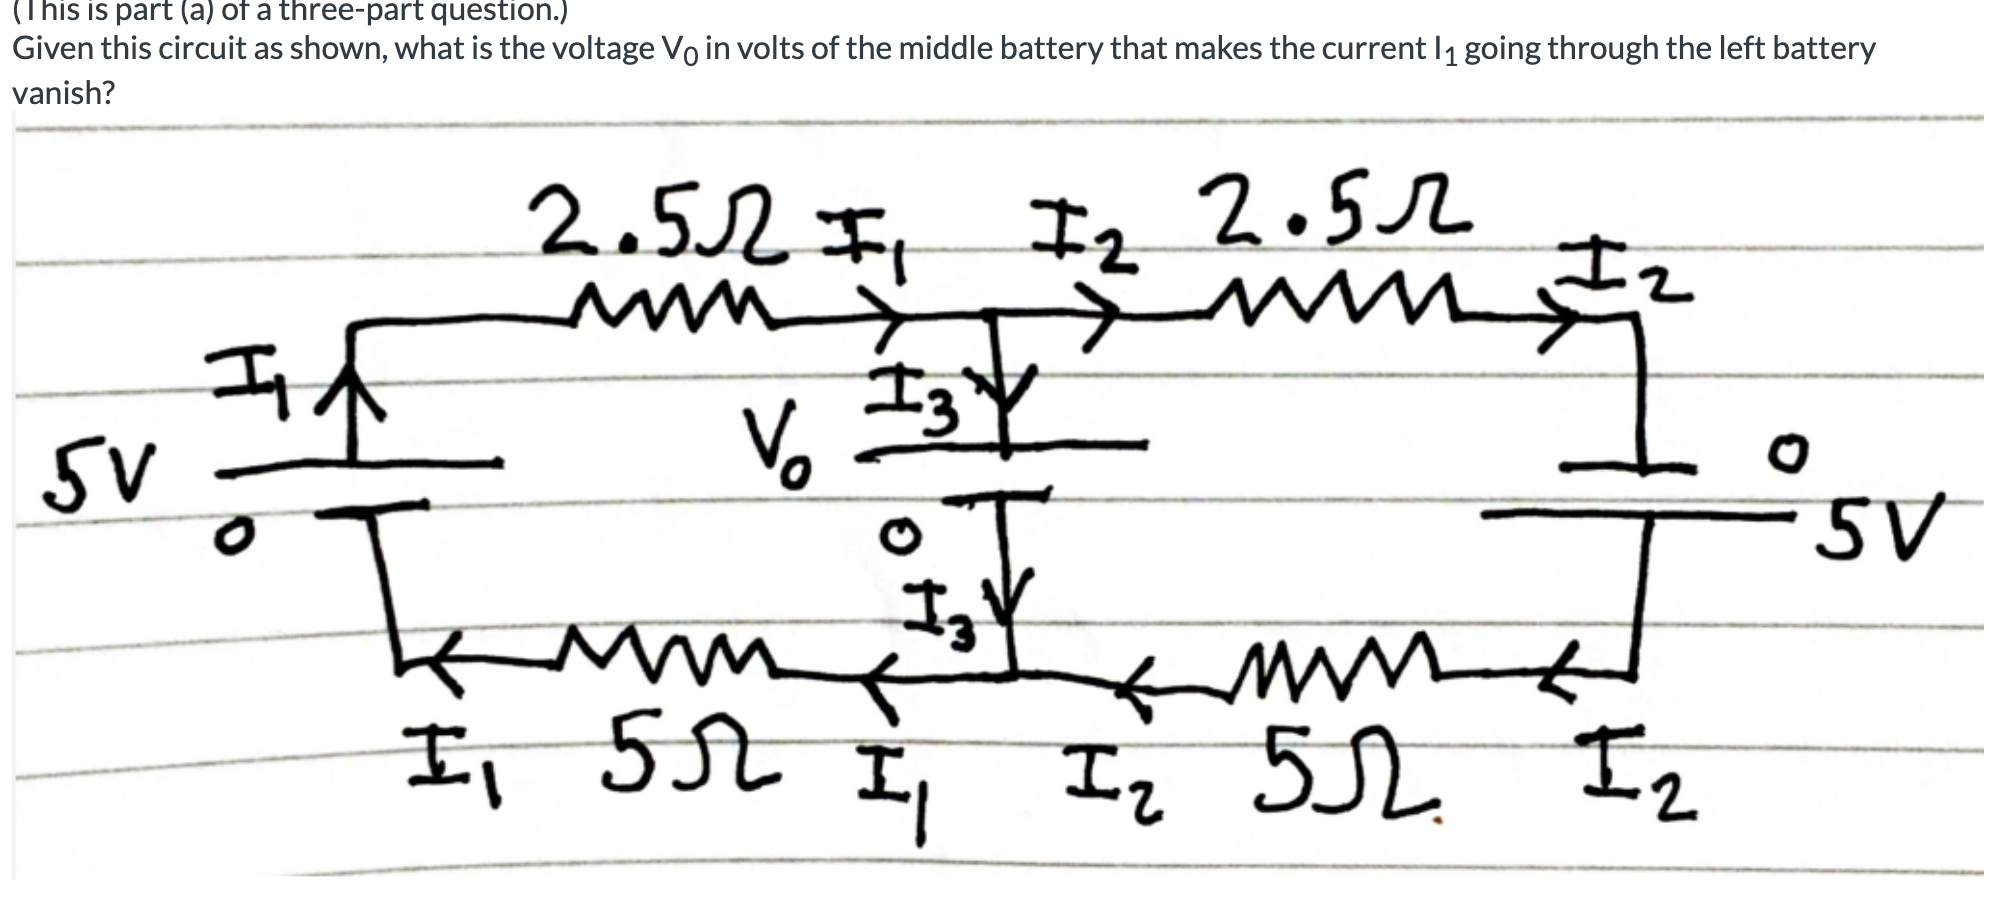 (This is part (a) of a three-part question.)
Given this circuit as shown, what is the voltage V₀ in volts of the middle battery that makes the current I₁ going through the left battery
vanish?
2.5Ω I₁ I₂ 2.5Ω I₂
I₁ I₃
5V V₀ 0
0 0 5V
I₃
I₁ 5Ω I₁ I₂ 5Ω I₂